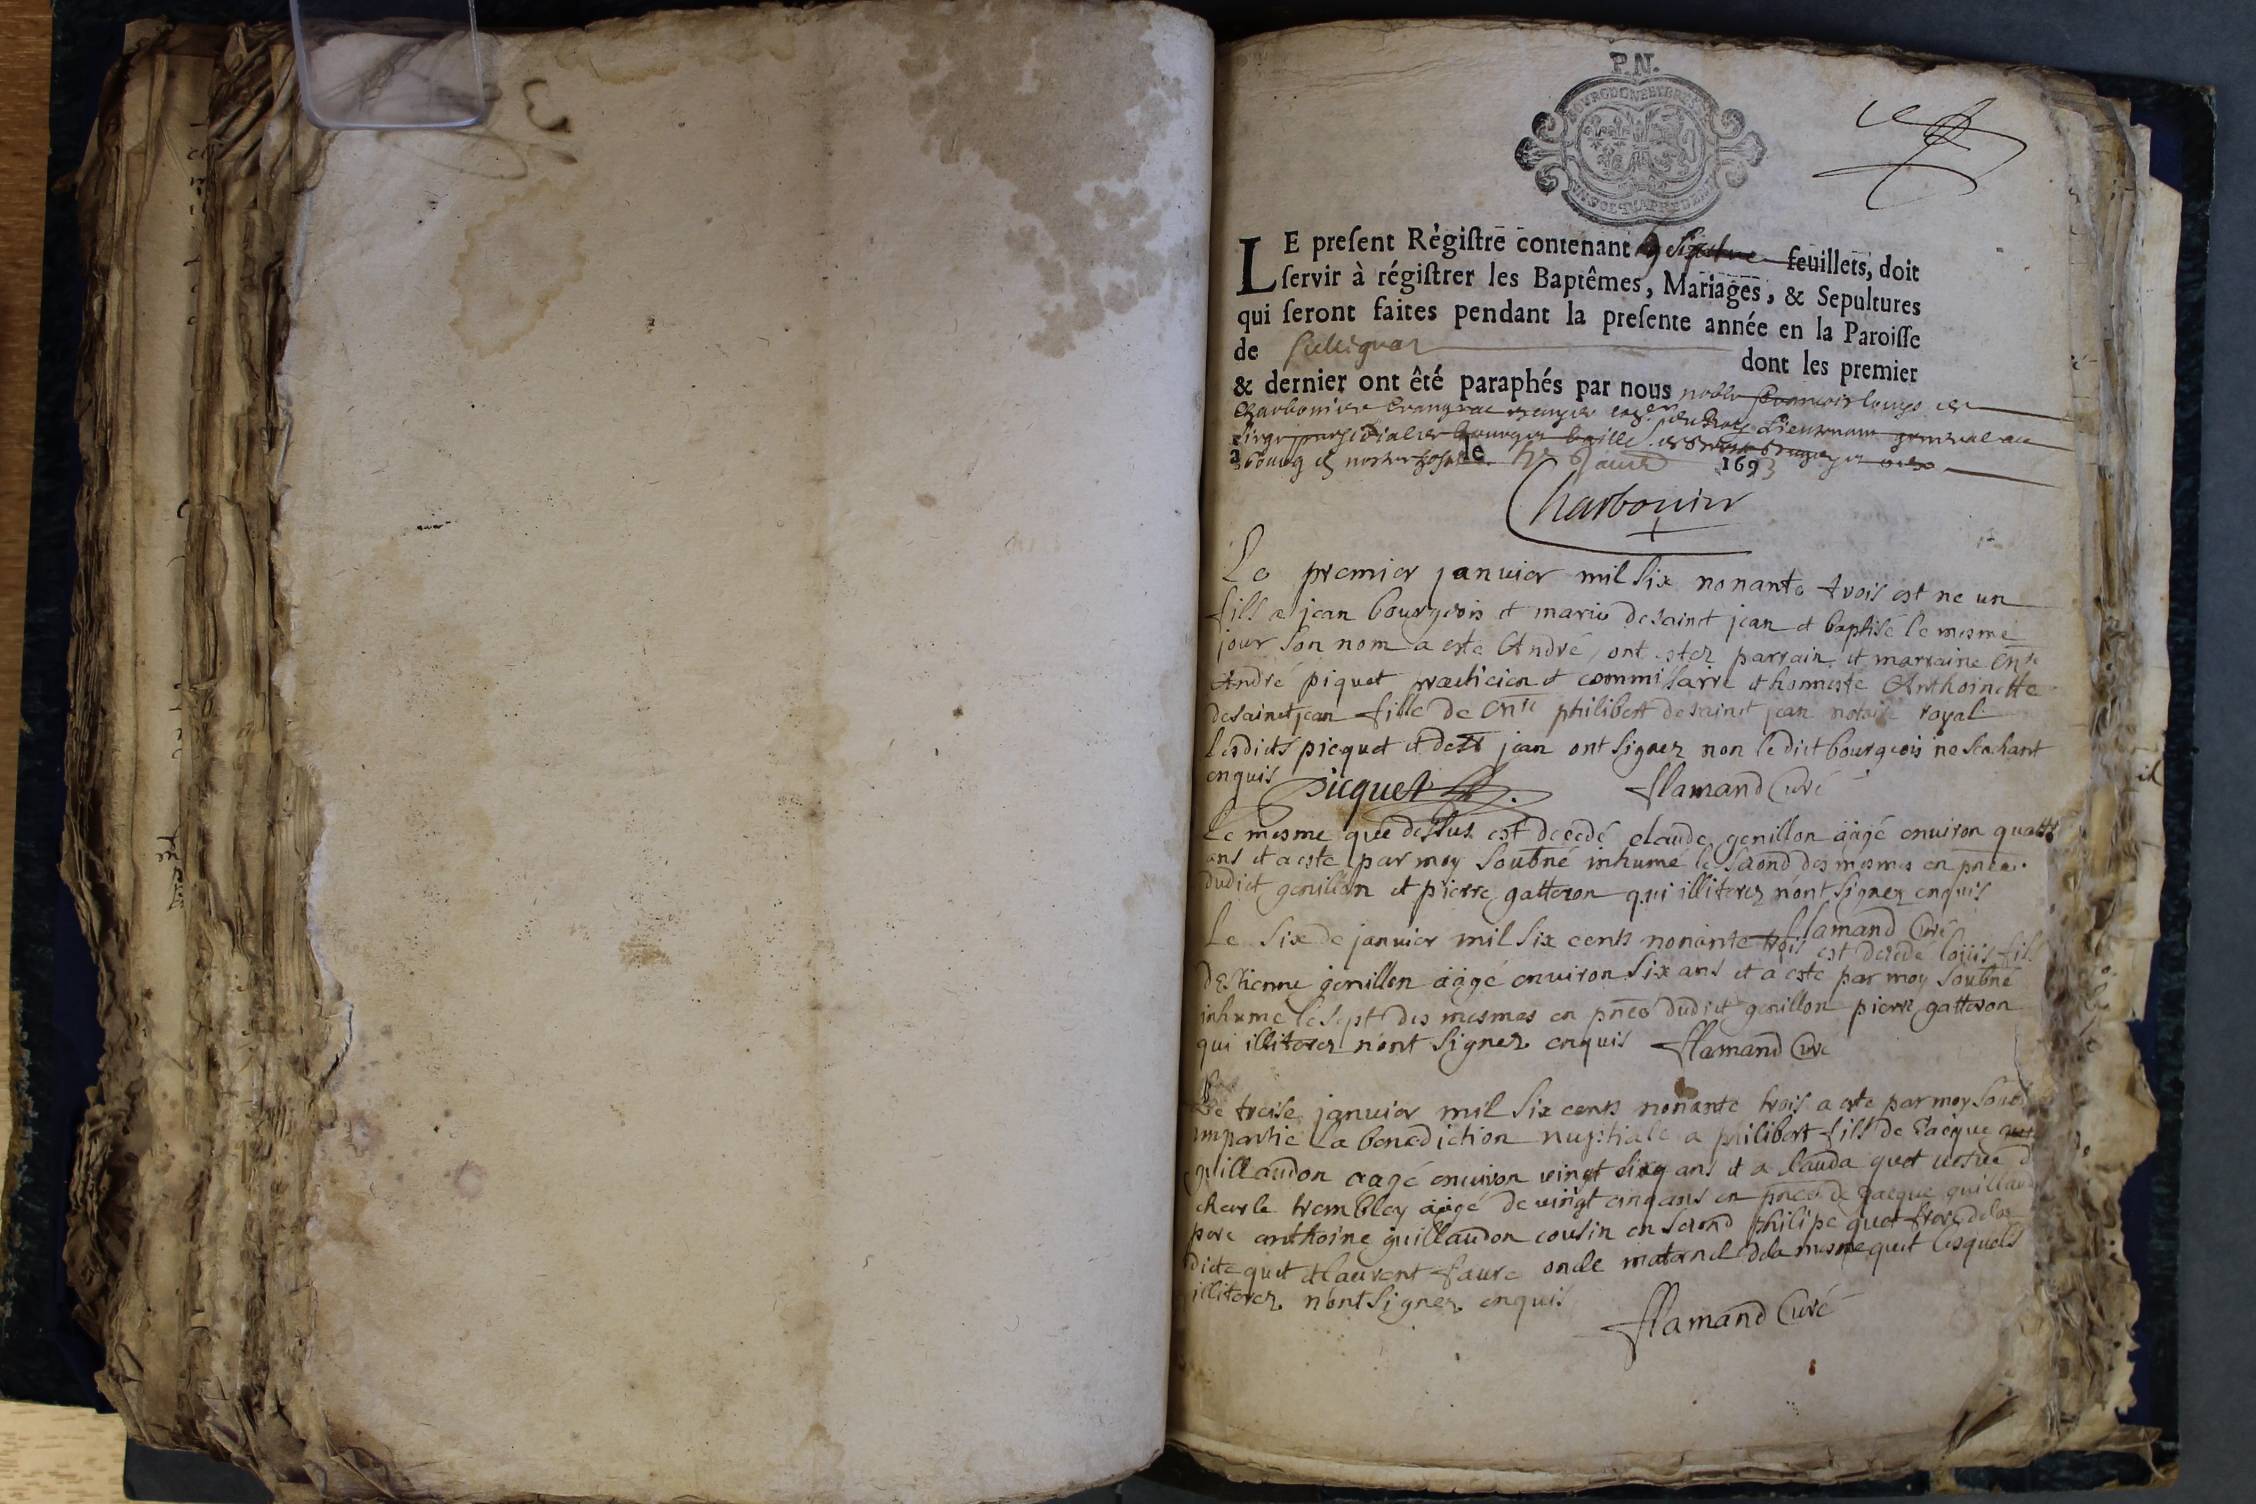 P.N.
LE preſent Règiſtre contenant feuillets, doit
ſervir à régiſtrer les Baptêmes, Mariages, & Sepultures
qui ſeront faites pendant la preſente année en la Paroiſſe
de dont les premier
& dernier ont êté paraphés par nous noble François Louys
Charbonier Lieutenant general au
a bourg le 1693
Charbonier
Le premier janvier mil six nonante trois est ne un
fils a jean bourgeois et marie desainct jean et baptisé le mesme
jour son nom a este André, ont estez parrain et marraine
André piquet practicien et commissarre et honneste Anthoinette
desainctjean fille de philibert desainct jean notaire royal
lesdicts picquet et dest jean ont signez non ledict bourgeois ne scachant
enquis Picquet flamand Curé
Le mesme que dessus est decedé claude genillon äagé environ quattr
ans et a este par moy soubné inhumé le second des mesmes en pnce
dudict genillon et pierre gatteron qui illiterez nont signez enquis
flamand Curé
Le six de janvier mil six cents nonante trois est decede loüis fils
destienne genillon äagé environ six ans et a este par moy soubné
inhume le sept des mesmes en pnce dudict genillon pierre gatteron
qui illiterez nont signez enquis flamand Curé
Le treise janvier mil six cents nonante trois a este par moy soub
impartie la benediction nuptiale a philibert fils de Jacque
guillaudon aagé environ vingt cinq ans et a clauda quet vesve d
charle trembley äagé de vingt cinq ans en pnce de jacque guillaud
pere anthoine guillaudon cousin en second philipe quet frere dela
dicte quet et laurent faure oncle maternel dela mesme quet lesquels
illiterez nont signez enquis
flamand Curé